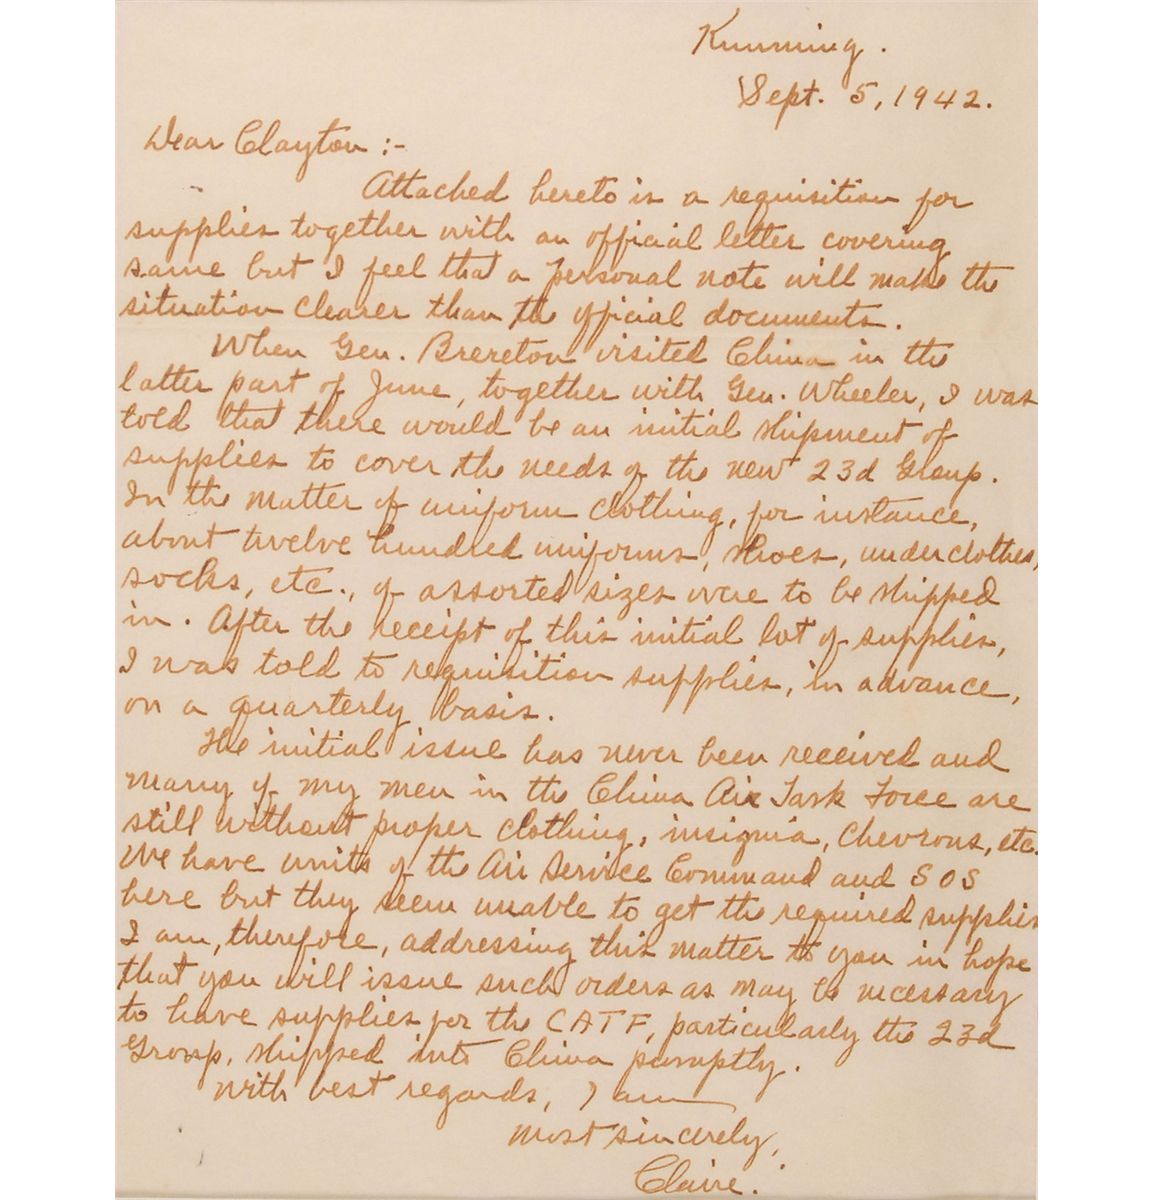 Kunming.
Sept. 5, 1942.
Dear Clayton :-
Attached hereto is a requisition for
supplies together with an official letter covering
same but I feel that a personal note will make the
situation clearer than the official documents.
When Gen. Brereton visited China in the
latter part of June, together with Gen. Wheeler, I was
told that there would be an initial shipment of
supplies to cover the needs of the new 23d Group.
In the matter of uniform clothing, for instance,
about twelve hundred uniforms, shoes, underclothes,
socks, etc., of assorted sizes were to be shipped
in. After the receipt of this initial lot of supplies,
I was told to requisition supplies, in advance,
on a quarterly basis.
The initial issue has never been received and
many of my men in the China Air Task Force are
still without proper clothing, insignia, chevrons, etc.
We have units of the Air Service Command and SOS
here but they seem unable to get the required supplies
I am, therefore, addressing this matter to you in hope
that you will issue such orders as may be necessary
to have supplies for the CATF, particularly the 23d
Group, shipped into China promptly.
With best regards, I am
Most sincerely,
Claire.